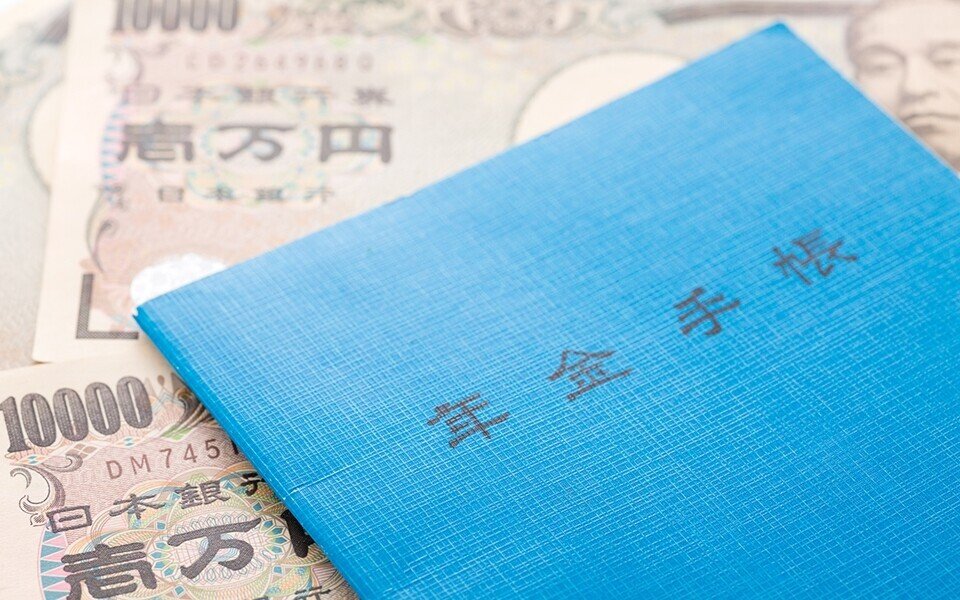 10000
日本銀行券
壱万円
日本銀行
年金手帳
10000
DM7451
日本銀行
壱万円